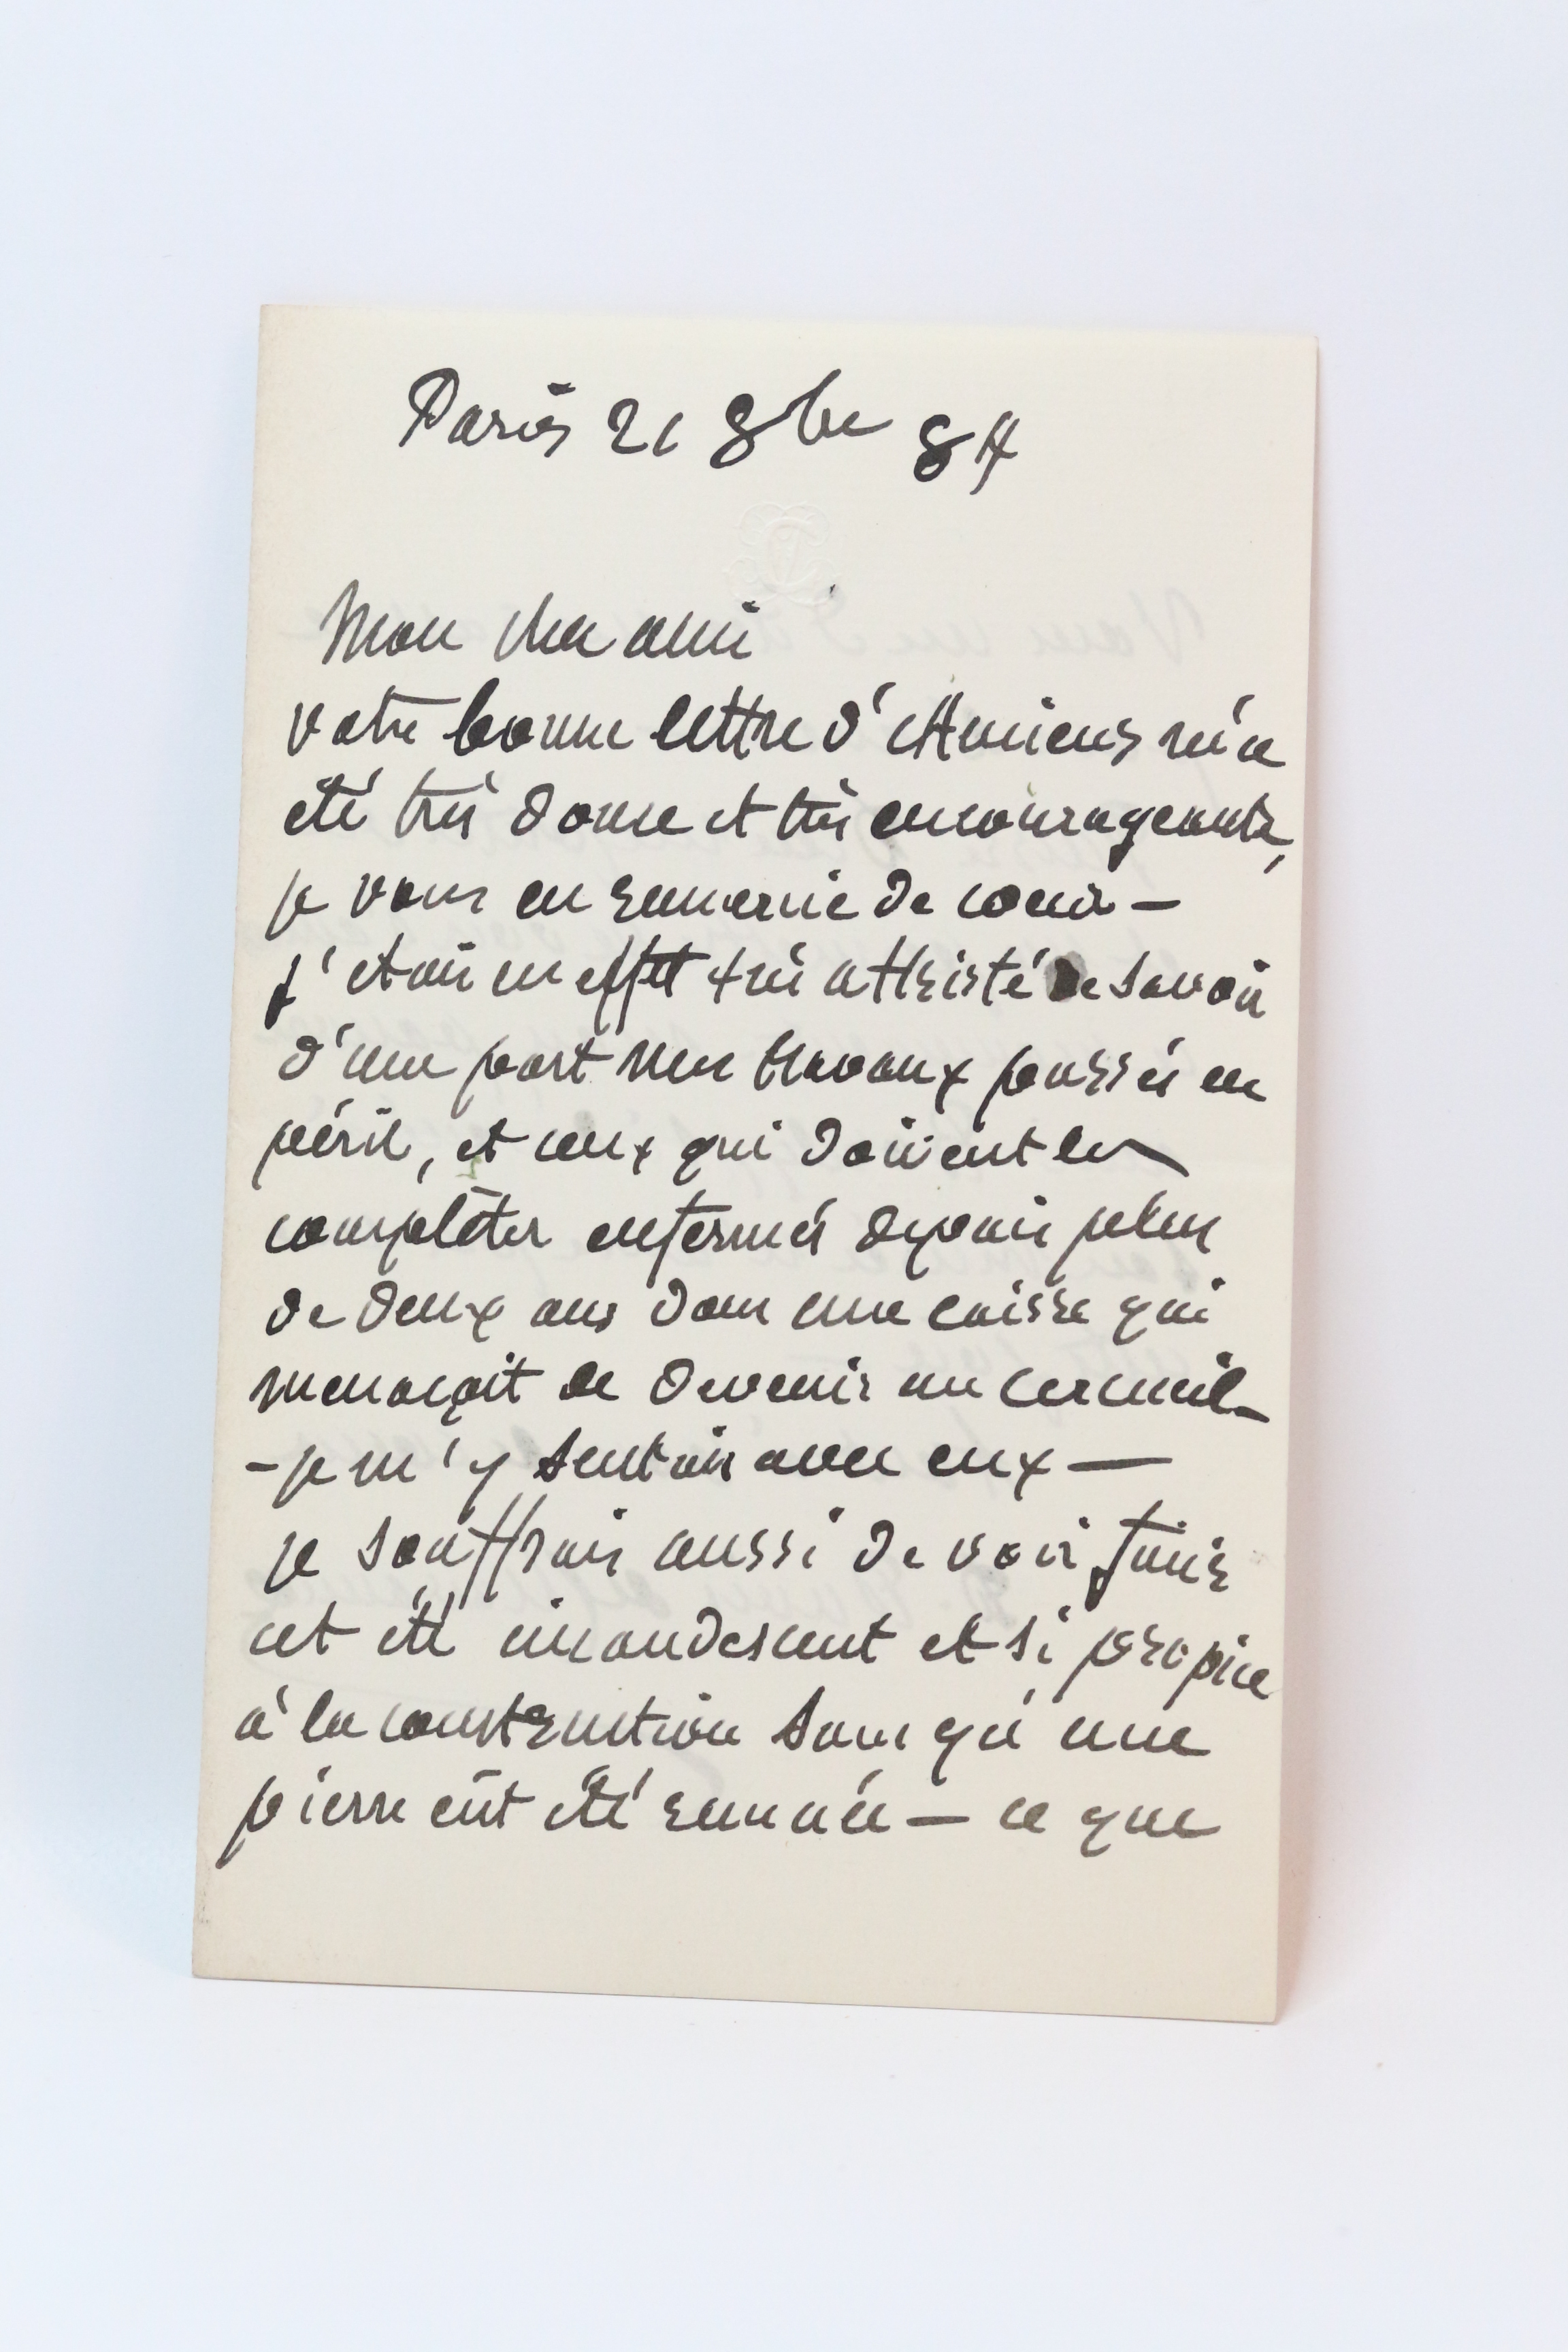 Paris 21 8bre 84
Mon cher ami
votre bonne lettre d'Amiens m'a
été très douce et très encourageante,
je vous en remercie de coeur —
j'étais en effet très attristé de savoir
d'une part mes travaux passés en
péril, et ceux qui doivent les
complèter enfermés depuis plus
de deux ans dans une caisse qui
menaçait de devenir un cercueil —
— je m'y sentais avec eux —
je souffrais aussi de voir finir
cet été incandescent et si propice
à la construction sans qu'une
pierre eût été remuée — ce que